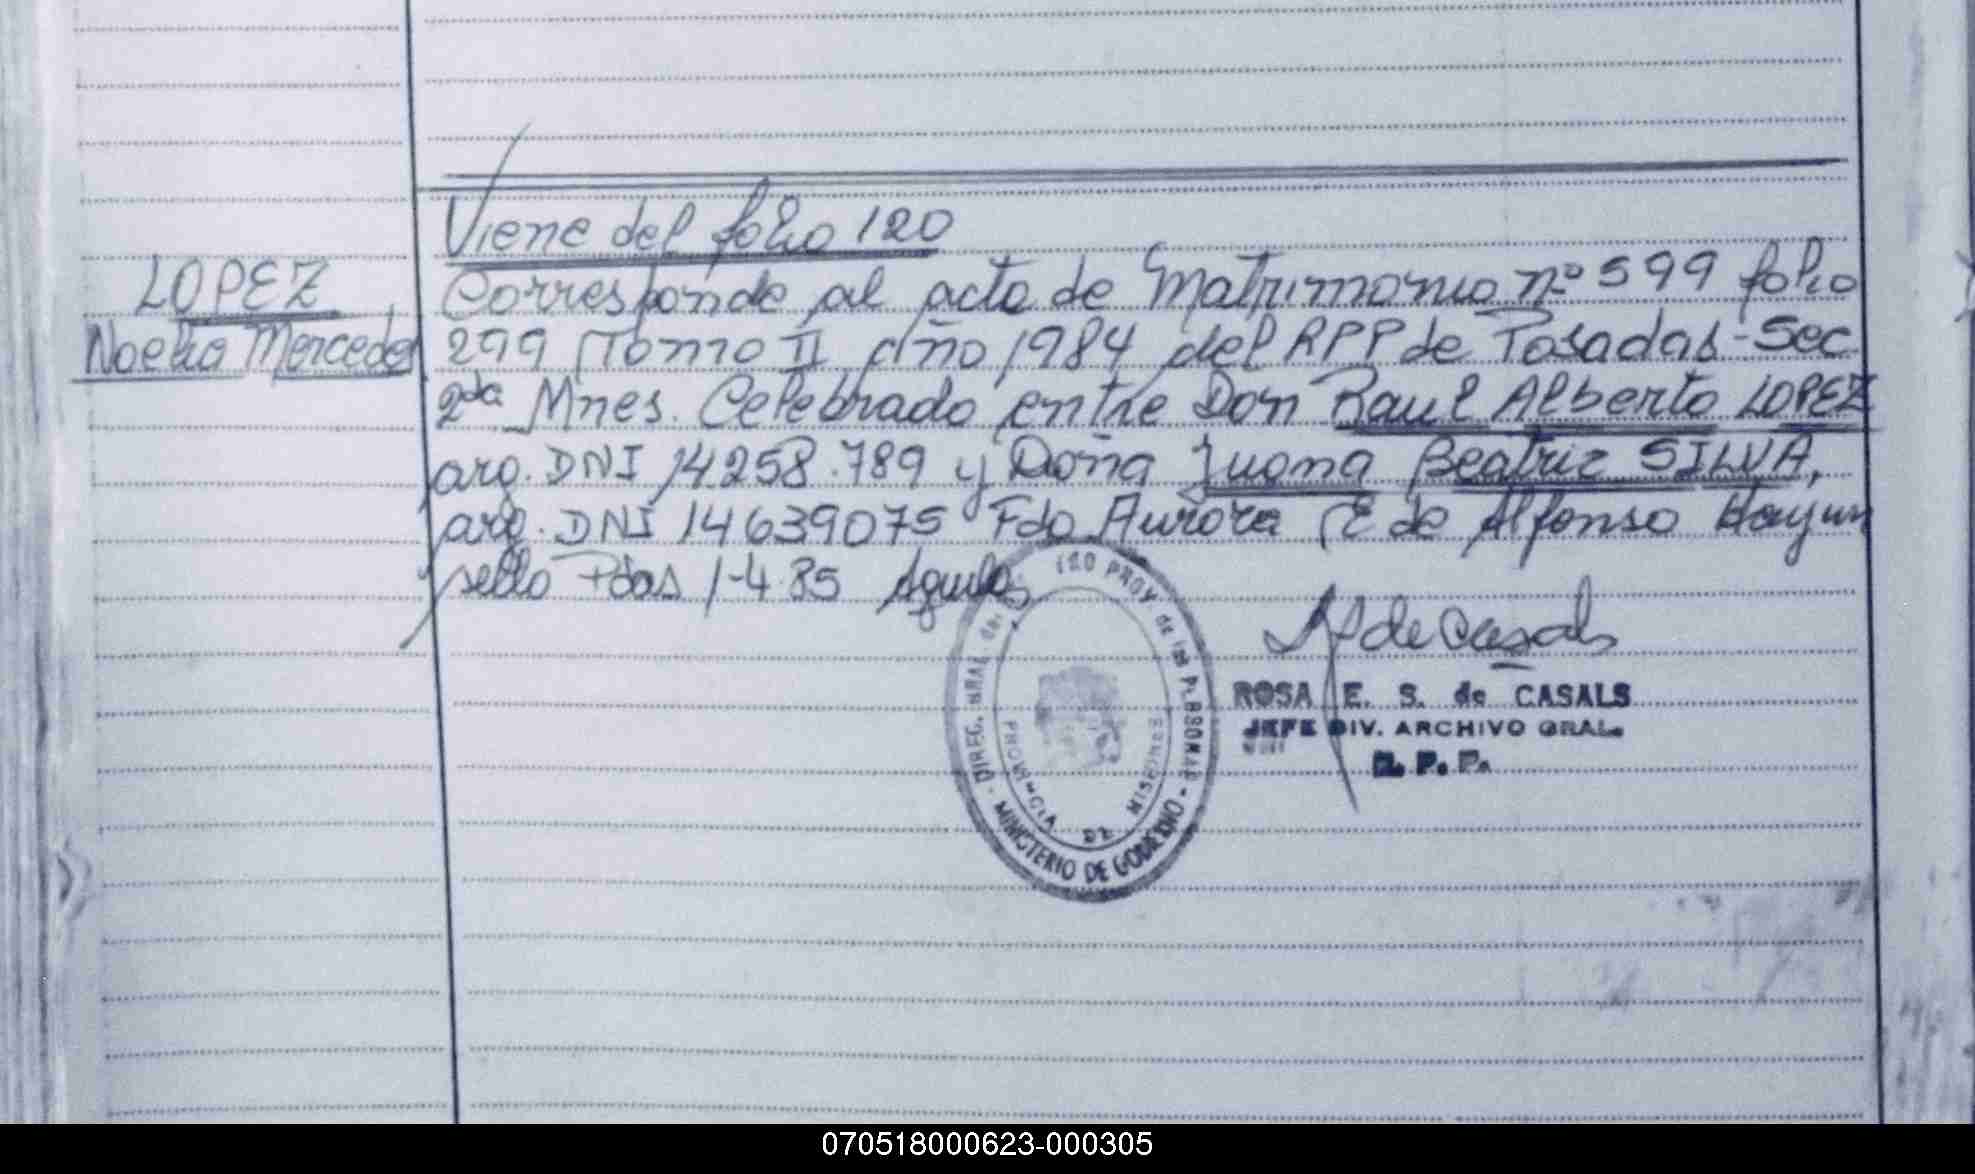 Viene del folio 120
LOPEZ
Noelia Mercedes
Corresponde al acta de Matrimonio nº 599 folio
299 Tomo II Año 1984 del RPP de Posadas - Sec
2da Mnes. Celebrado entre Don Raul Alberto LOPEZ
arg. DNI 14.258.789 y Doña Juana Beatriz SILVA,
arg. DNI 14639075 Fdo Aurora E de Alfonso Hay un
sello Pdas 1-4-85 Aguila
de Casals
ROSA E. S. de CASALS
JEFE DIV. ARCHIVO GRAL.
R. P. P.
DIREC. GRAL. del PROV. de las PERSONAS
- MINISTERIO DE GOBIERNO -
PROVINCIA DE MISIONES
070518000623-000305